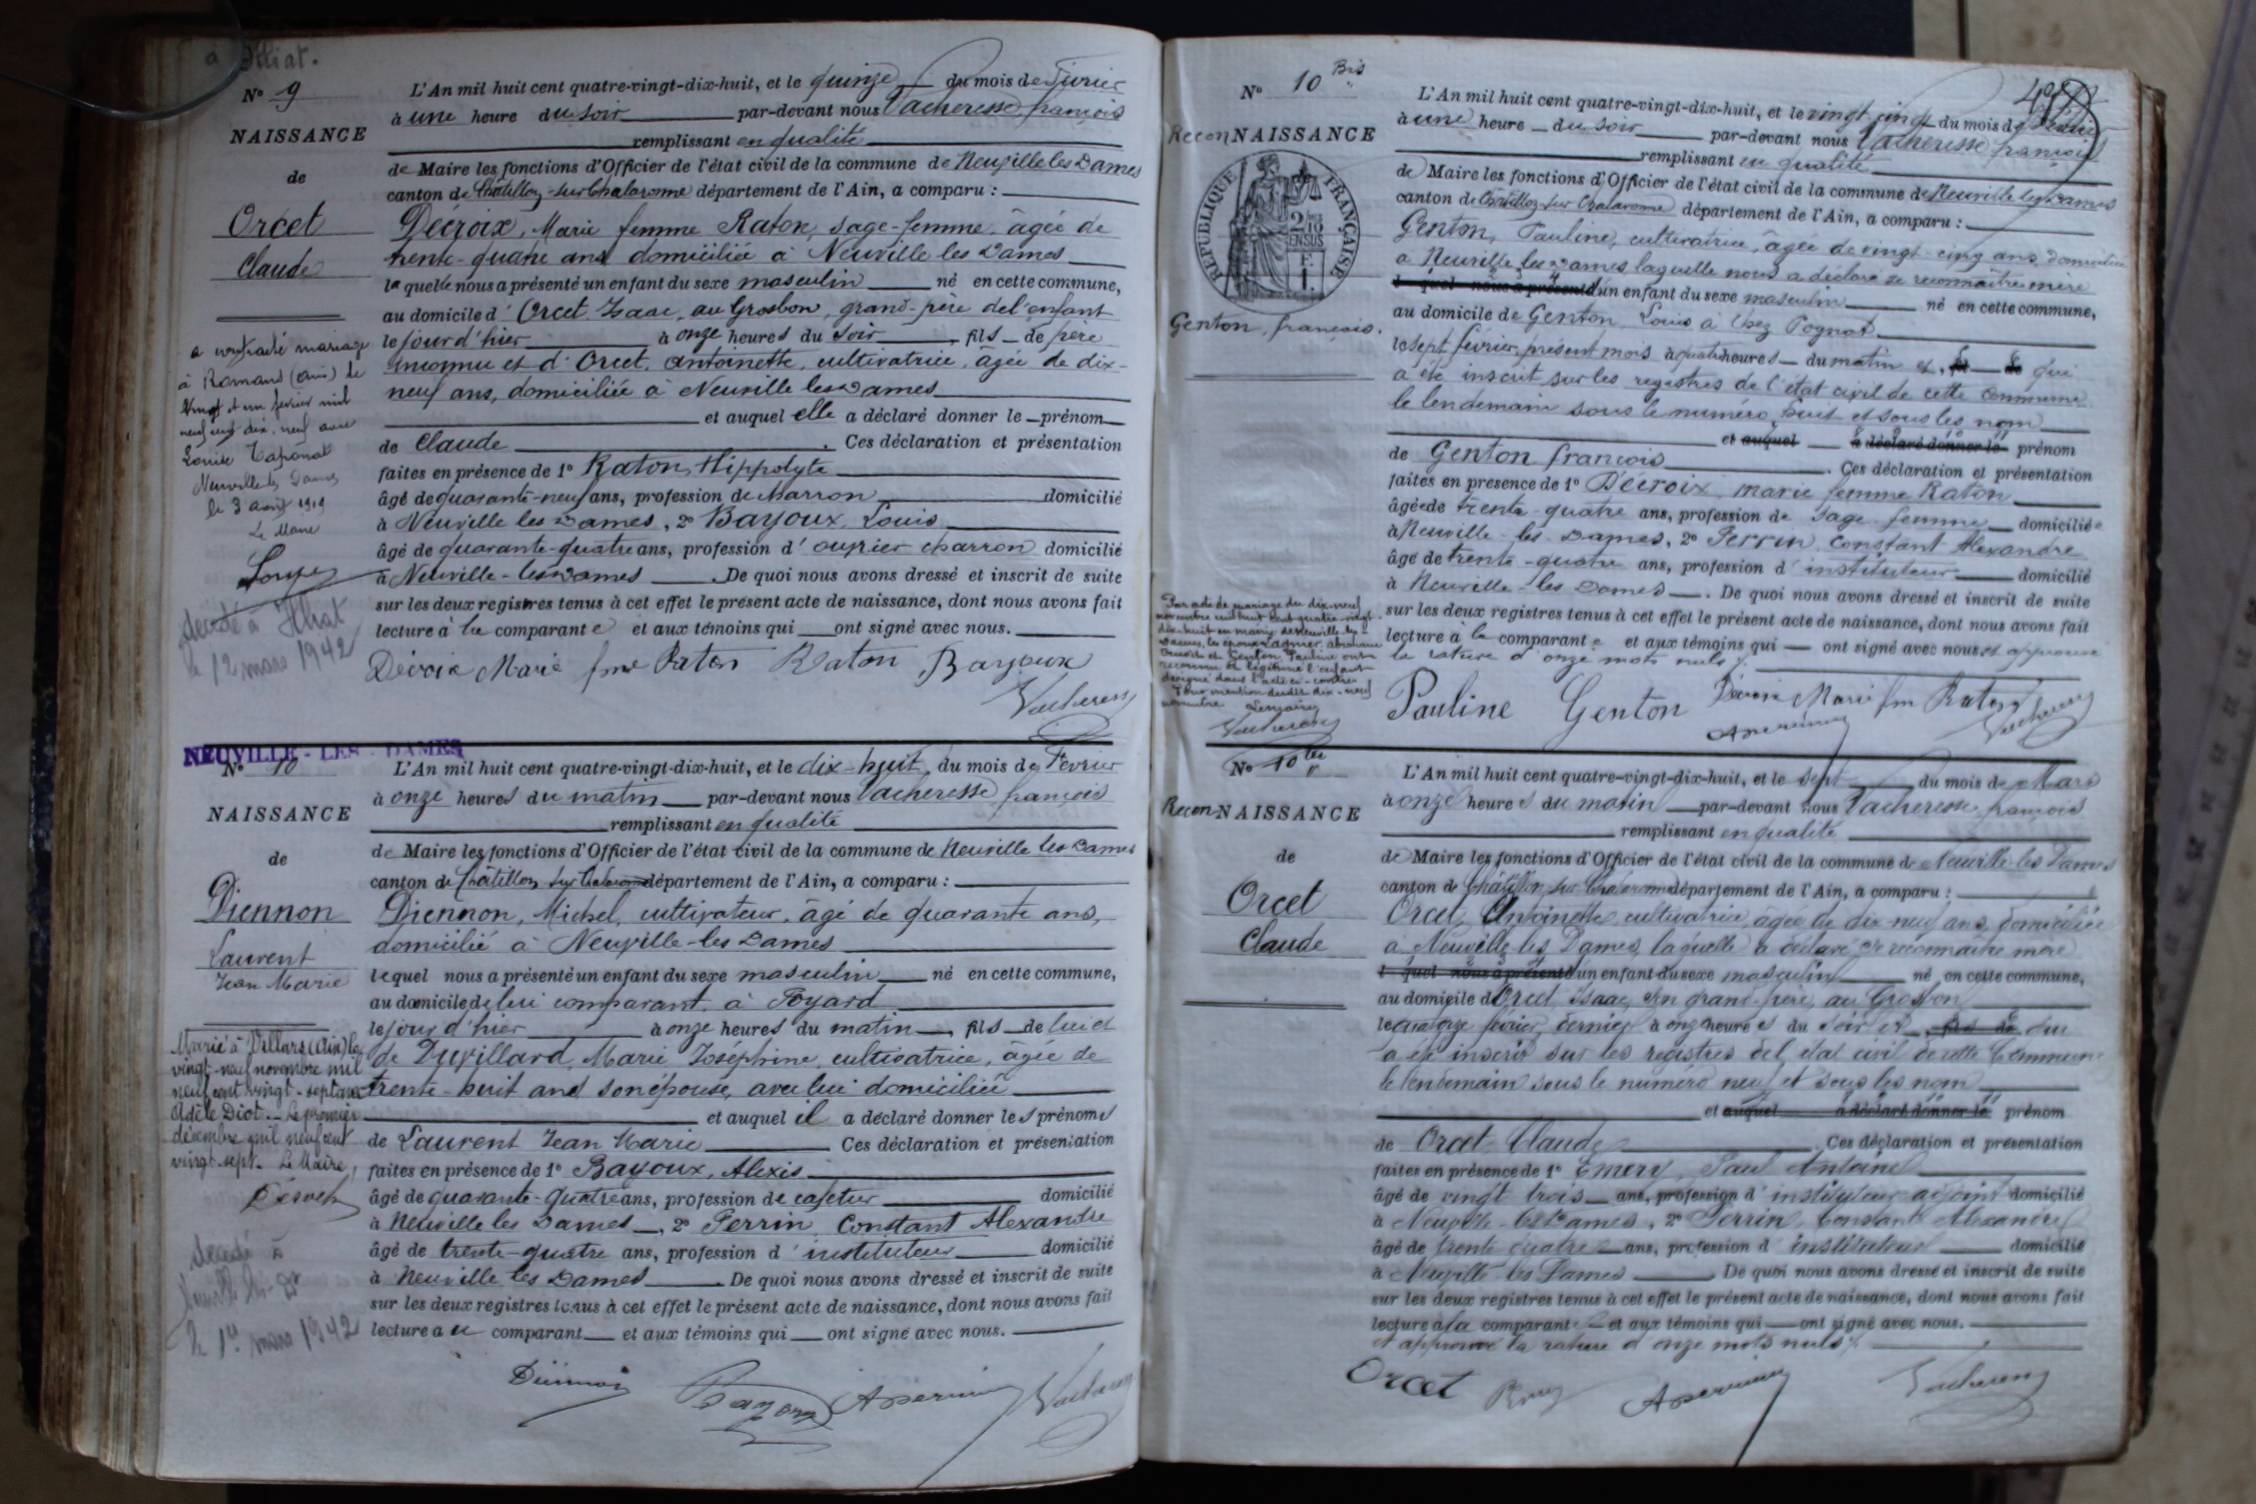 à Illiat.
Nº 9
NAISSANCE
de
Orcet
Claude
a contracté mariage
à Romans (Ain) le
vingt et un février mil
neuf cent dix-neuf avec
Louise Taponat
Neuville les Dames
le 3 avril 1919
Le Maire
décédé à Illiat
le 12 mars 1942
L'An mil huit cent quatre-vingt-dix-huit, et le quinze du mois de Février
à une heure du soir par-devant nous Vacheresse françois
remplissant en qualité
de Maire les fonctions d'Officier de l'état civil de la commune de Neuville les Dames
canton de Châtillon-sur-Chalaronne département de l'Ain, a comparu :
Décroix, Marie femme Raton, sage-femme, âgée de
trente-quatre ans domiciliée à Neuville les Dames
laquelle nous a présenté un enfant du sexe masculin né en cette commune,
au domicile d'Orcet Isaac, au Grosbon, grand-père de l'enfant
le jour d'hier à onze heures du soir, fils de père
inconnu et d'Orcet, Antoinette, cultivatrice, âgée de dix-
neuf ans, domiciliée à Neuville les Dames
et auquel elle a déclaré donner le prénom
de Claude. Ces déclaration et présentation
faites en présence de 1º Raton, Hippolyte
âgé de quarante-neuf ans, profession de Marron domicilié
à Neuville les Dames, 2º Bayoux, Louis
âgé de quarante-quatre ans, profession d'ouvrier charron domicilié
à Neuville-les-Dames. De quoi nous avons dressé et inscrit de suite
sur les deux registres tenus à cet effet le présent acte de naissance, dont nous avons fait
lecture à la comparante et aux témoins qui ont signé avec nous.
Décroix Marie fme Raton Raton Bayoux
Vacheresse
NEUVILLE-LES-DAMES
Nº 10
NAISSANCE
de
Diennon
Laurent
Jean Marie
Marié à Villars (Ain) le
vingt-neuf novembre mil
neuf cent vingt-sept avec
Adèle Diot. Le premier
décembre mil neuf cent
vingt-sept. Le Maire,
décédé à
Neuville les-Ds
le 1er mars 1942
L'An mil huit cent quatre-vingt-dix-huit, et le dix-huit du mois de Février
à onze heures du matin par-devant nous Vacheresse françois
remplissant en qualité
de Maire les fonctions d'Officier de l'état civil de la commune de Neuville les Dames
canton de Châtillon sur Chalaronne département de l'Ain, a comparu :
Diennon, Michel, cultivateur, âgé de quarante ans,
domicilié à Neuville-les Dames
lequel nous a présenté un enfant du sexe masculin né en cette commune,
au domicile de lui comparant, à Foyard
le jour d'hier à onze heures du matin, fils de lui et
de Duvillard, Marie Joséphine, cultivatrice, âgée de
trente-huit ans son épouse, avec lui domiciliée
et auquel il a déclaré donner les prénoms
de Laurent Jean Marie Ces déclaration et présentation
faites en présence de 1º Bayoux, Alexis
âgé de quarante-quatre ans, profession de cafetier domicilié
à Neuville les Dames, 2º Perrin Constant Alexandre
âgé de trente-quatre ans, profession d'instituteur domicilié
à Neuville les Dames. De quoi nous avons dressé et inscrit de suite
sur les deux registres tenus à cet effet le présent acte de naissance, dont nous avons fait
lecture au comparant et aux témoins qui ont signé avec nous.
Diennon Bayoux A Perrin Vacheresse
Nº 10 Bis
ReconNAISSANCE
RÉPUBLIQUE FRANÇAISE
Genton, françois.
Par acte de mariage du dix-neuf
novembre mil huit cent quatre-vingt-
dix-huit en mairie de Neuville-les-
Dames, les époux
et Genton Pauline ont
reconnu et légitimé l'enfant
désigné dans l'acte ci-contre
Pour mention dudit dix-neuf
novembre
Vacheresse
L'An mil huit cent quatre-vingt-dix-huit, et le vingt cinq du mois de Février
à une heure du soir par-devant nous Vacheresse françois
remplissant en qualité
de Maire les fonctions d'Officier de l'état civil de la commune de Neuville les Dames
canton de Châtillon sur Chalaronne département de l'Ain, a comparu :
Genton, Pauline, cultivatrice, âgée de vingt-cinq ans, domiciliée
à Neuville les Dames laquelle nous a déclaré se reconnaître mère
l quel nous a présenté d'un enfant du sexe masculin né en cette commune,
au domicile de Genton, Louis à chez Pognat
le sept février, présent mois à quatre heures du matin et, fils de qui
a été inscrit sur les registres de l'état civil de cette commune
le lendemain sous le numéro huit et sous les nom
et auquel a déclaré donner le prénom
de Genton françois. Ces déclaration et présentation
faites en présence de 1º Décroix, marie femme Raton
âgée de trente-quatre ans, profession de sage-femme domiciliée
à Neuville-les-Dames, 2º Perrin, Constant Alexandre
âgé de trente-quatre ans, profession d'instituteur domicilié
à Neuville-les Dames. De quoi nous avons dressé et inscrit de suite
sur les deux registres tenus à cet effet le présent acte de naissance, dont nous avons fait
lecture à la comparante et aux témoins qui ont signé avec nous et approuvé
la rature d'onze mots nuls
Pauline Genton Décroix Marie fm Raton
A Perrin Vacheresse
Nº 10 ter
ReconNAISSANCE
de
Orcet
Claude
L'An mil huit cent quatre-vingt-dix-huit, et le sept du mois de Mars
à onze heures du matin par-devant nous Vacheresse françois
remplissant en qualité
de Maire les fonctions d'Officier de l'état civil de la commune de Neuville-les Dames
canton de Châtillon sur Chalaronne département de l'Ain, a comparu :
Orcet, Antoinette, cultivatrice, âgée de dix neuf ans, domiciliée
à Neuville les Dames, laquelle a déclaré se reconnaître mère
l quel nous a présenté d'un enfant du sexe masculin né en cette commune,
au domicile d'Orcet Isaac, son grand-père, au Grosbon
le quatorze février dernier à onze heures du soir et, fils de qui
a été inscrit sur les registres de l'état civil de cette Commune
le lendemain sous le numéro neuf et sous les nom
et auquel a déclaré donner le prénom
de Orcet Claude Ces déclaration et présentation
faites en présence de 1º Emery, Paul Antoine
âgé de vingt trois ans, profession d'instituteur adjoint domicilié
à Neuville-les Dames, 2º Perrin, Constant Alexandre
âgé de trente quatre ans, profession d'instituteur domicilié
à Neuville-les Dames De quoi nous avons dressé et inscrit de suite
sur les deux registres tenus à cet effet le présent acte de naissance, dont nous avons fait
lecture à la comparante et aux témoins qui ont signé avec nous.
et approuvé la rature d'onze mots nuls
Orcet A Perrin Vacheresse